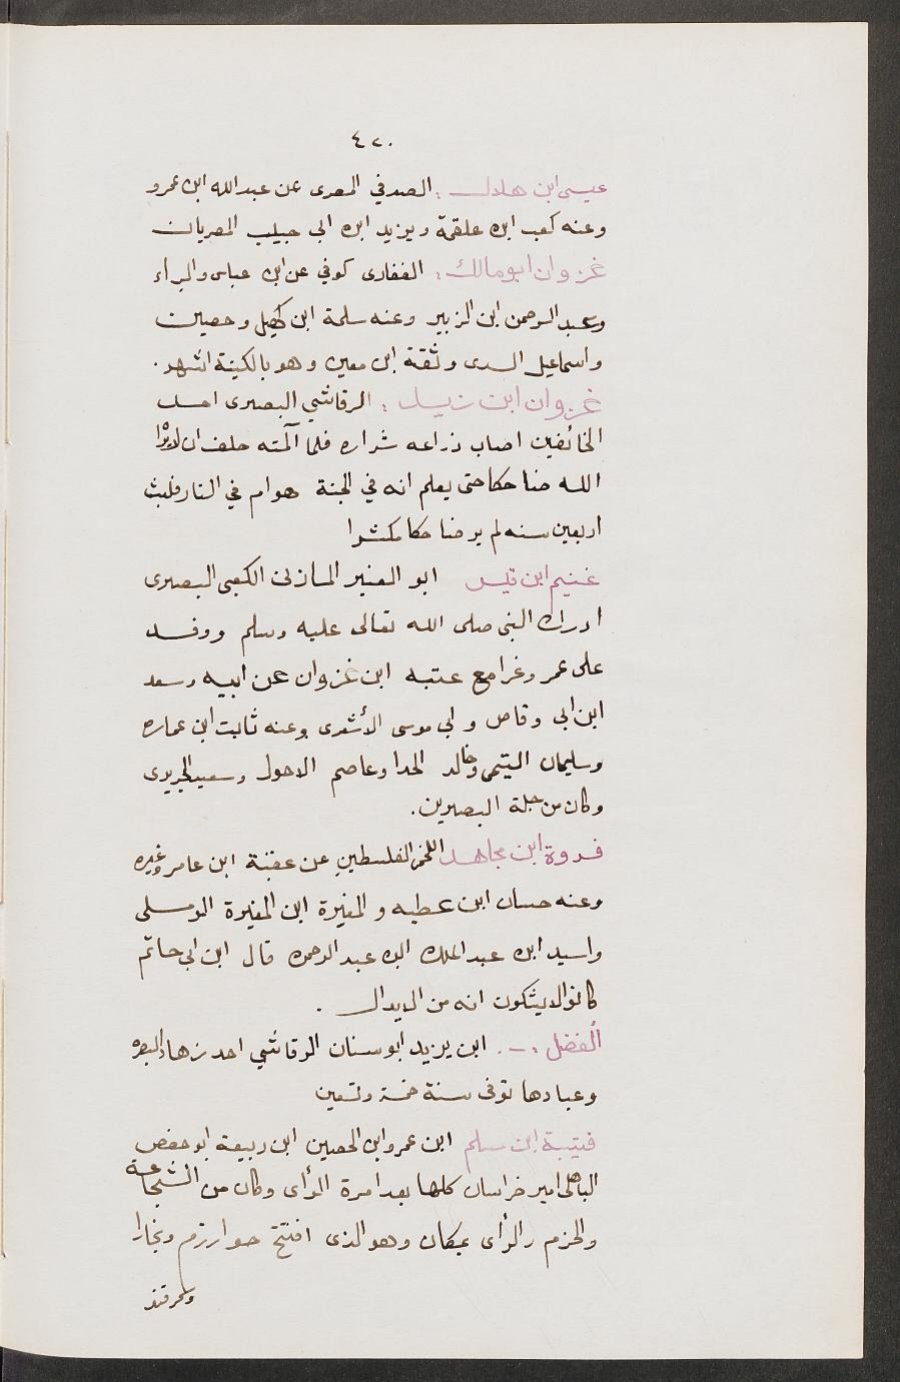 ٤٢٠
عيسى ابن هلال : الصدفي المصرى عن عبد الله ابن عمرو
وعنه كعب ابن علقمة ويزيد ابن ابى حبيب المصريان
غزوان ابو مالك : الغفارى كوفي عن ابن عباس والبراء
وعبد الرحمن ابن الزبير وعنه سلمة ابن كهيل وحصين
واسماعيل السدى وثقة ابن معين وهو بالكنية اشهر .
غزوان ابن زيد : الرقاشي البصرى احد
الخائفين اصاب ذراعه شراره فلما آلمته حلف ان لا يرا
الله ضاحكا حتى يعلم انه في الجنة هو ام في النار فلبث
اربعين سنه لم ير ضاحكا مكشرا
غنيم ابن قيس ابو العنبر المازنى الكعبى البصرى
ادرك النبى صلى الله تعالى عليه وسلم ووفد
على عمر وغزا مع عتبه ابن غزوان عن ابيه وسعد
ابن ابى وقاص وابى موسى الأشعرى وعنه ثابت ابن عماره
وسليمان التيمى وخالد الحدا وعاصم الاحول وسعيد الجريرى
وكان من جلة البصرين .
فروة ابن مجاهد اللخمى الفلسطين عن عقبة ابن عامر وغيره
وعنه حسان ابن عطيه والمغيرة ابن المغيرة الرملى
واسيد ابن عبد الملك ابن عبد الرحمن قال ابن ابى حاتم
كانوا لا يشكون انه من الابدال .
الفضل .-. ابن يزيد ابو سنان الرقاشي احد زهاد البصره
وعبادها توفى سنة خمسة وتسعين
قتيبة ابن سلم ابن عمرو ابن الحصين ابن ربيعة ابو حفص
الباهلى امير خراسان كلها بعد امرة الرأى وكان من الشجاعة
والحزم والرأى بمكان وهو الذى افتتح خوارزم وبخارا
وسمرقند